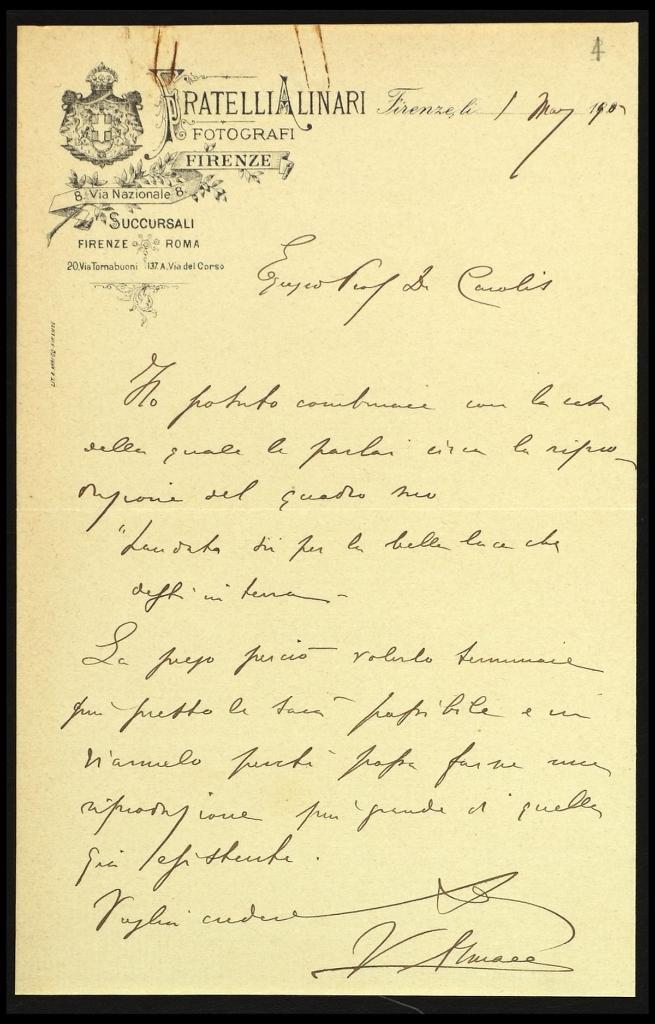 4
FRATELLI ALINARI
FOTOGRAFI
FIRENZE
Firenze, li 1 Mag 190
8. Via Nazionale 8.
SUCCURSALI
FIRENZE ROMA
20. Via Tornabuoni 137. A. Via del Corso
Egregio Prof De Carolis
Ho potuto combinare con la casa
della quale le parlai circa la ripro-
duzione del quadro suo
"Laudata sii per la bella luce che
desti in terra -
La prego perciò volerlo terminare
più presto le sarà possibile e in
viarmelo perchè possa farne una
riproduzione più grande di quella
già esistente.
Voglia credere
V Alinari